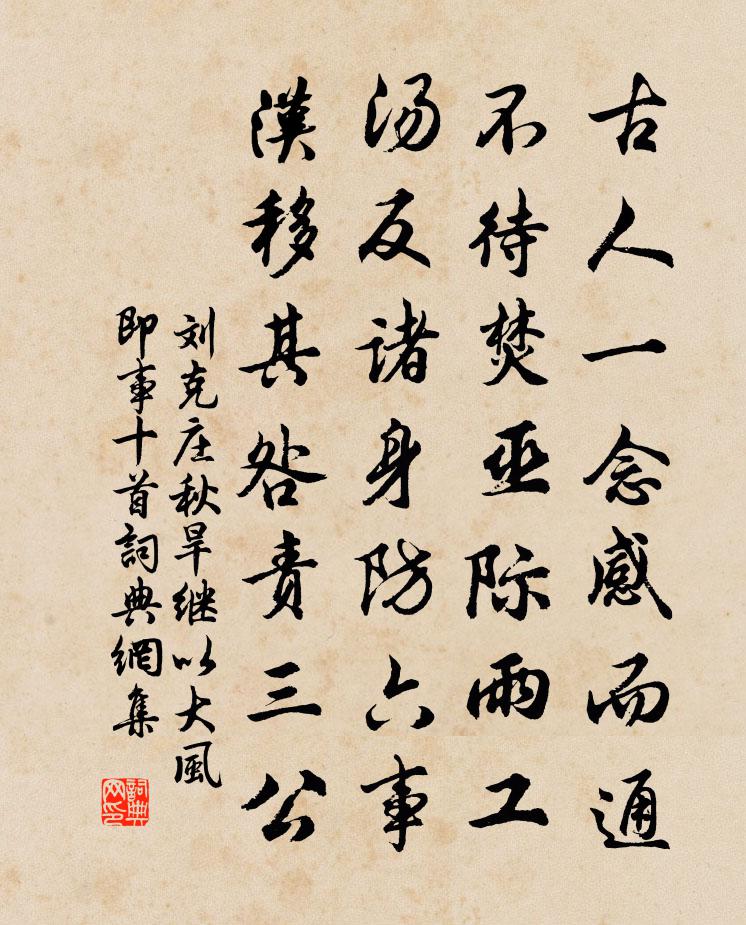 古人一念感而通
不待焚巫际雨工
汤反诸身防六事
漢移其咎责三公
刘克庄秋旱继以大風
即事十首詞典網集
詞典网印